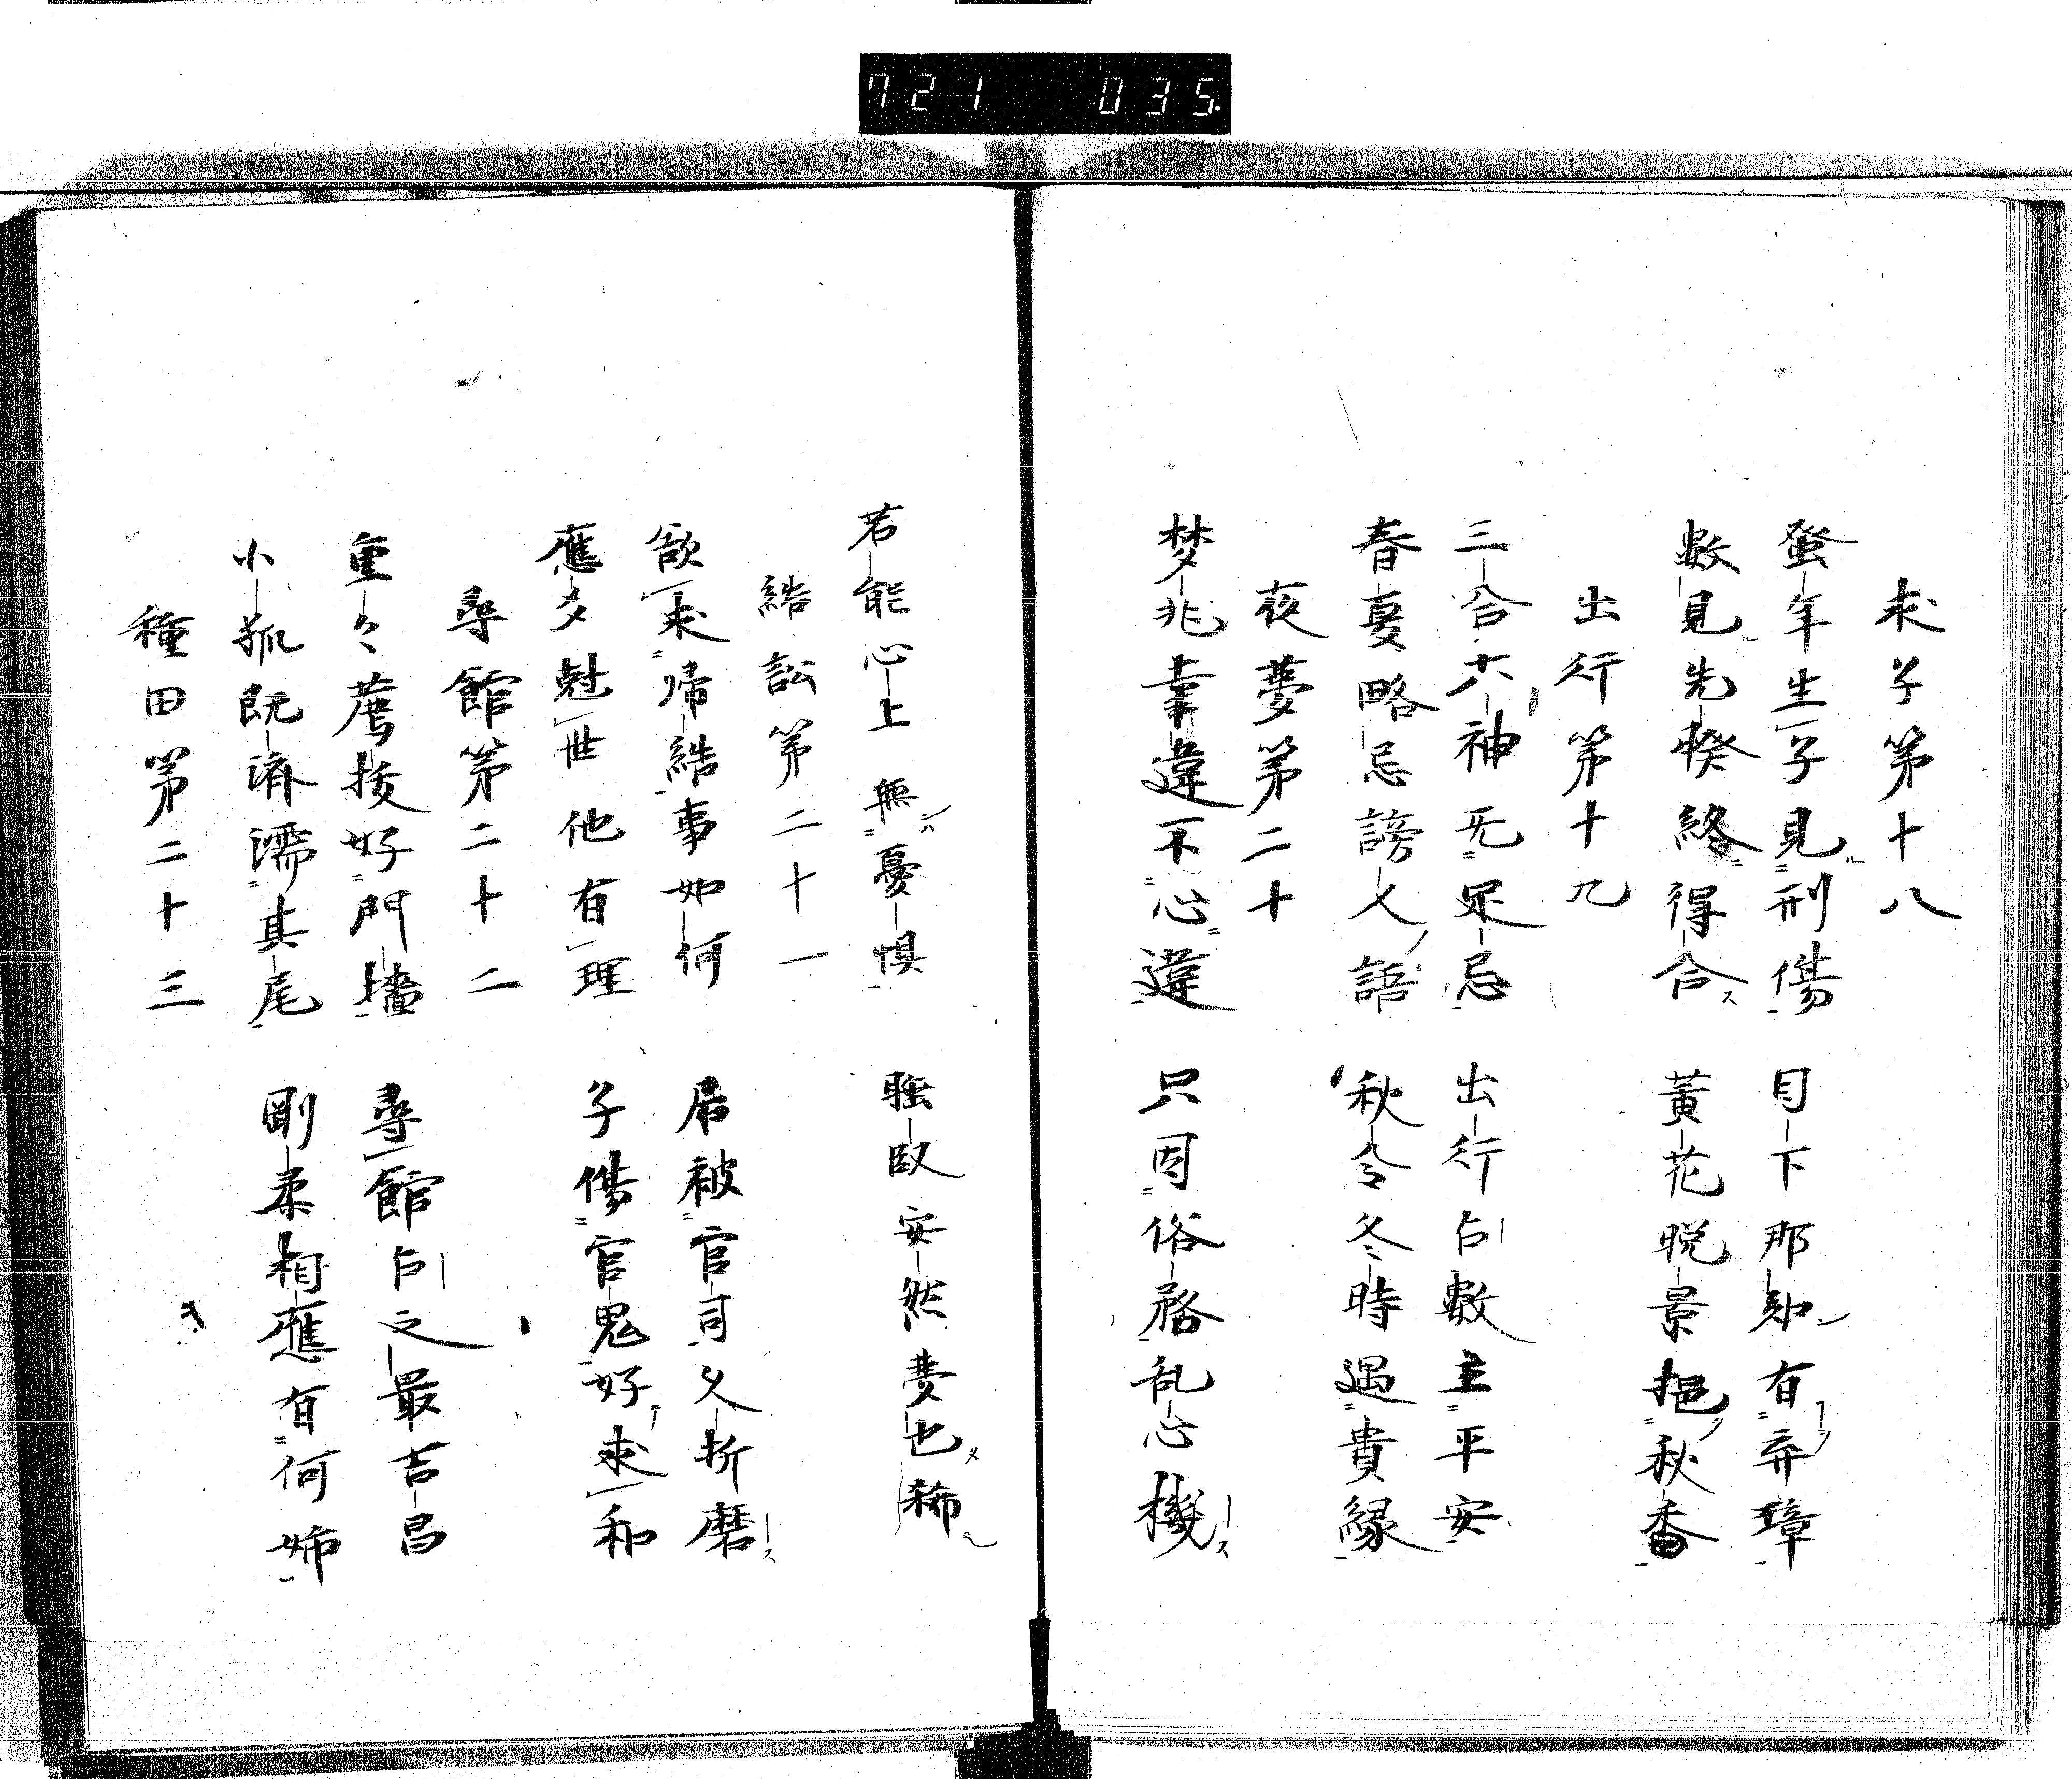 721 035
求子第十八
蚤年生子見ル刑傷 目下那知有弄璋
數見ル先暌終得合ス 黄花晩景挹秋香
出行第十九
三合六神无足忌 出行占數主平安
春夏略忌謗人語 秋令冬時遇貴縁
夜夢第二十
梦兆韋違不心違 只因俗務乱心機
若能心上無憂惧  睡臥安然夢也稀
結訟第二十一
欲求帰結事如何 居被官司又折磨
應多尅世他有理 子傷官鬼好求和
尋館第二十二
重々薦拔好門墻 尋館占之最吉昌
小狐既濟濡其尾 剛柔相應有何妨
種田第二十三